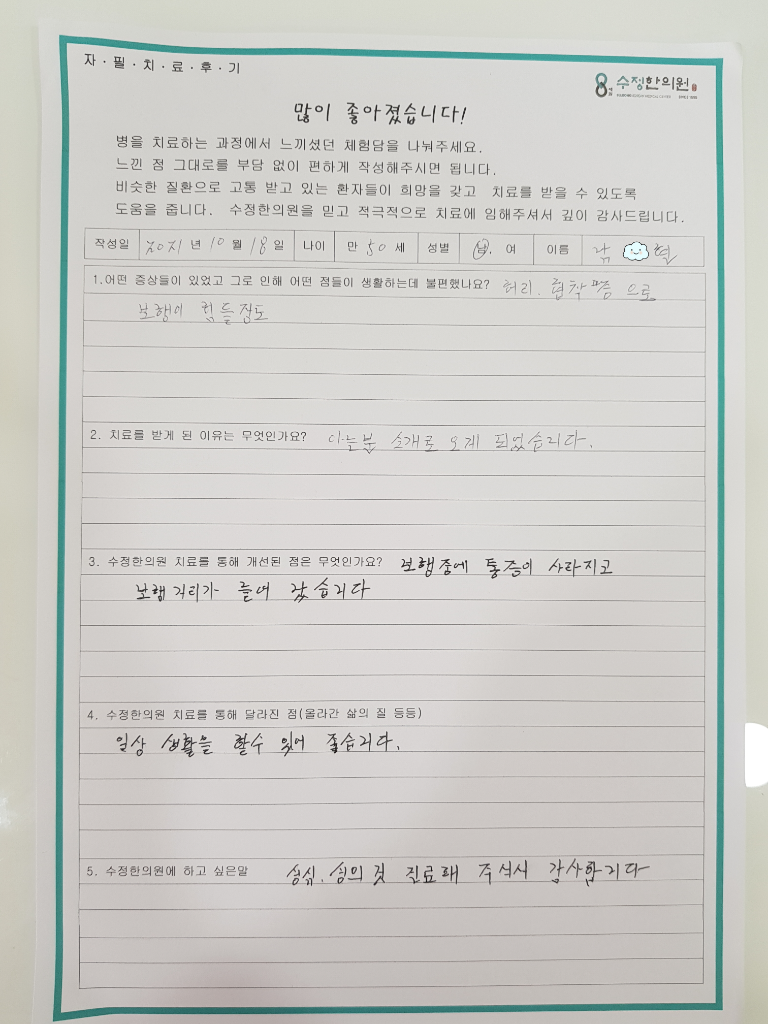 자·필·치·료·후·기
수정한의원
많이 좋아졌습니다!
병을 치료하는 과정에서 느끼셨던 체험담을 나눠주세요.
느낀 점 그대로를 부담 없이 편하게 작성해주시면 됩니다.
비슷한 질환으로 고통 받고 있는 환자들이 희망을 갖고 치료를 받을 수 있도록
도움을 줍니다. 수정한의원을 믿고 적극적으로 치료에 임해주셔서 깊이 감사드립니다.
작성일 2021 년 10 월 18 일 나이 만 50 세 성별 남, 여 이름 남 혁
1.어떤 증상들이 있었고 그로 인해 어떤 점들이 생활하는데 불편했나요? 허리. 협착증 으로
보행이 힘들정도
2. 치료를 받게 된 이유는 무엇인가요? 아는분 소개로 오게 되었습니다.
3. 수정한의원 치료를 통해 개선된 점은 무엇인가요? 보행중에 통증이 사라지고
보행거리가 늘어 났습니다
4. 수정한의원 치료를 통해 달라진 점(올라간 삶의 질 등등)
일상 생활을 할수 있어 좋습니다.
5. 수정한의원에 하고 싶은말 성심.성의 것 진료해 주셔서 감사합니다